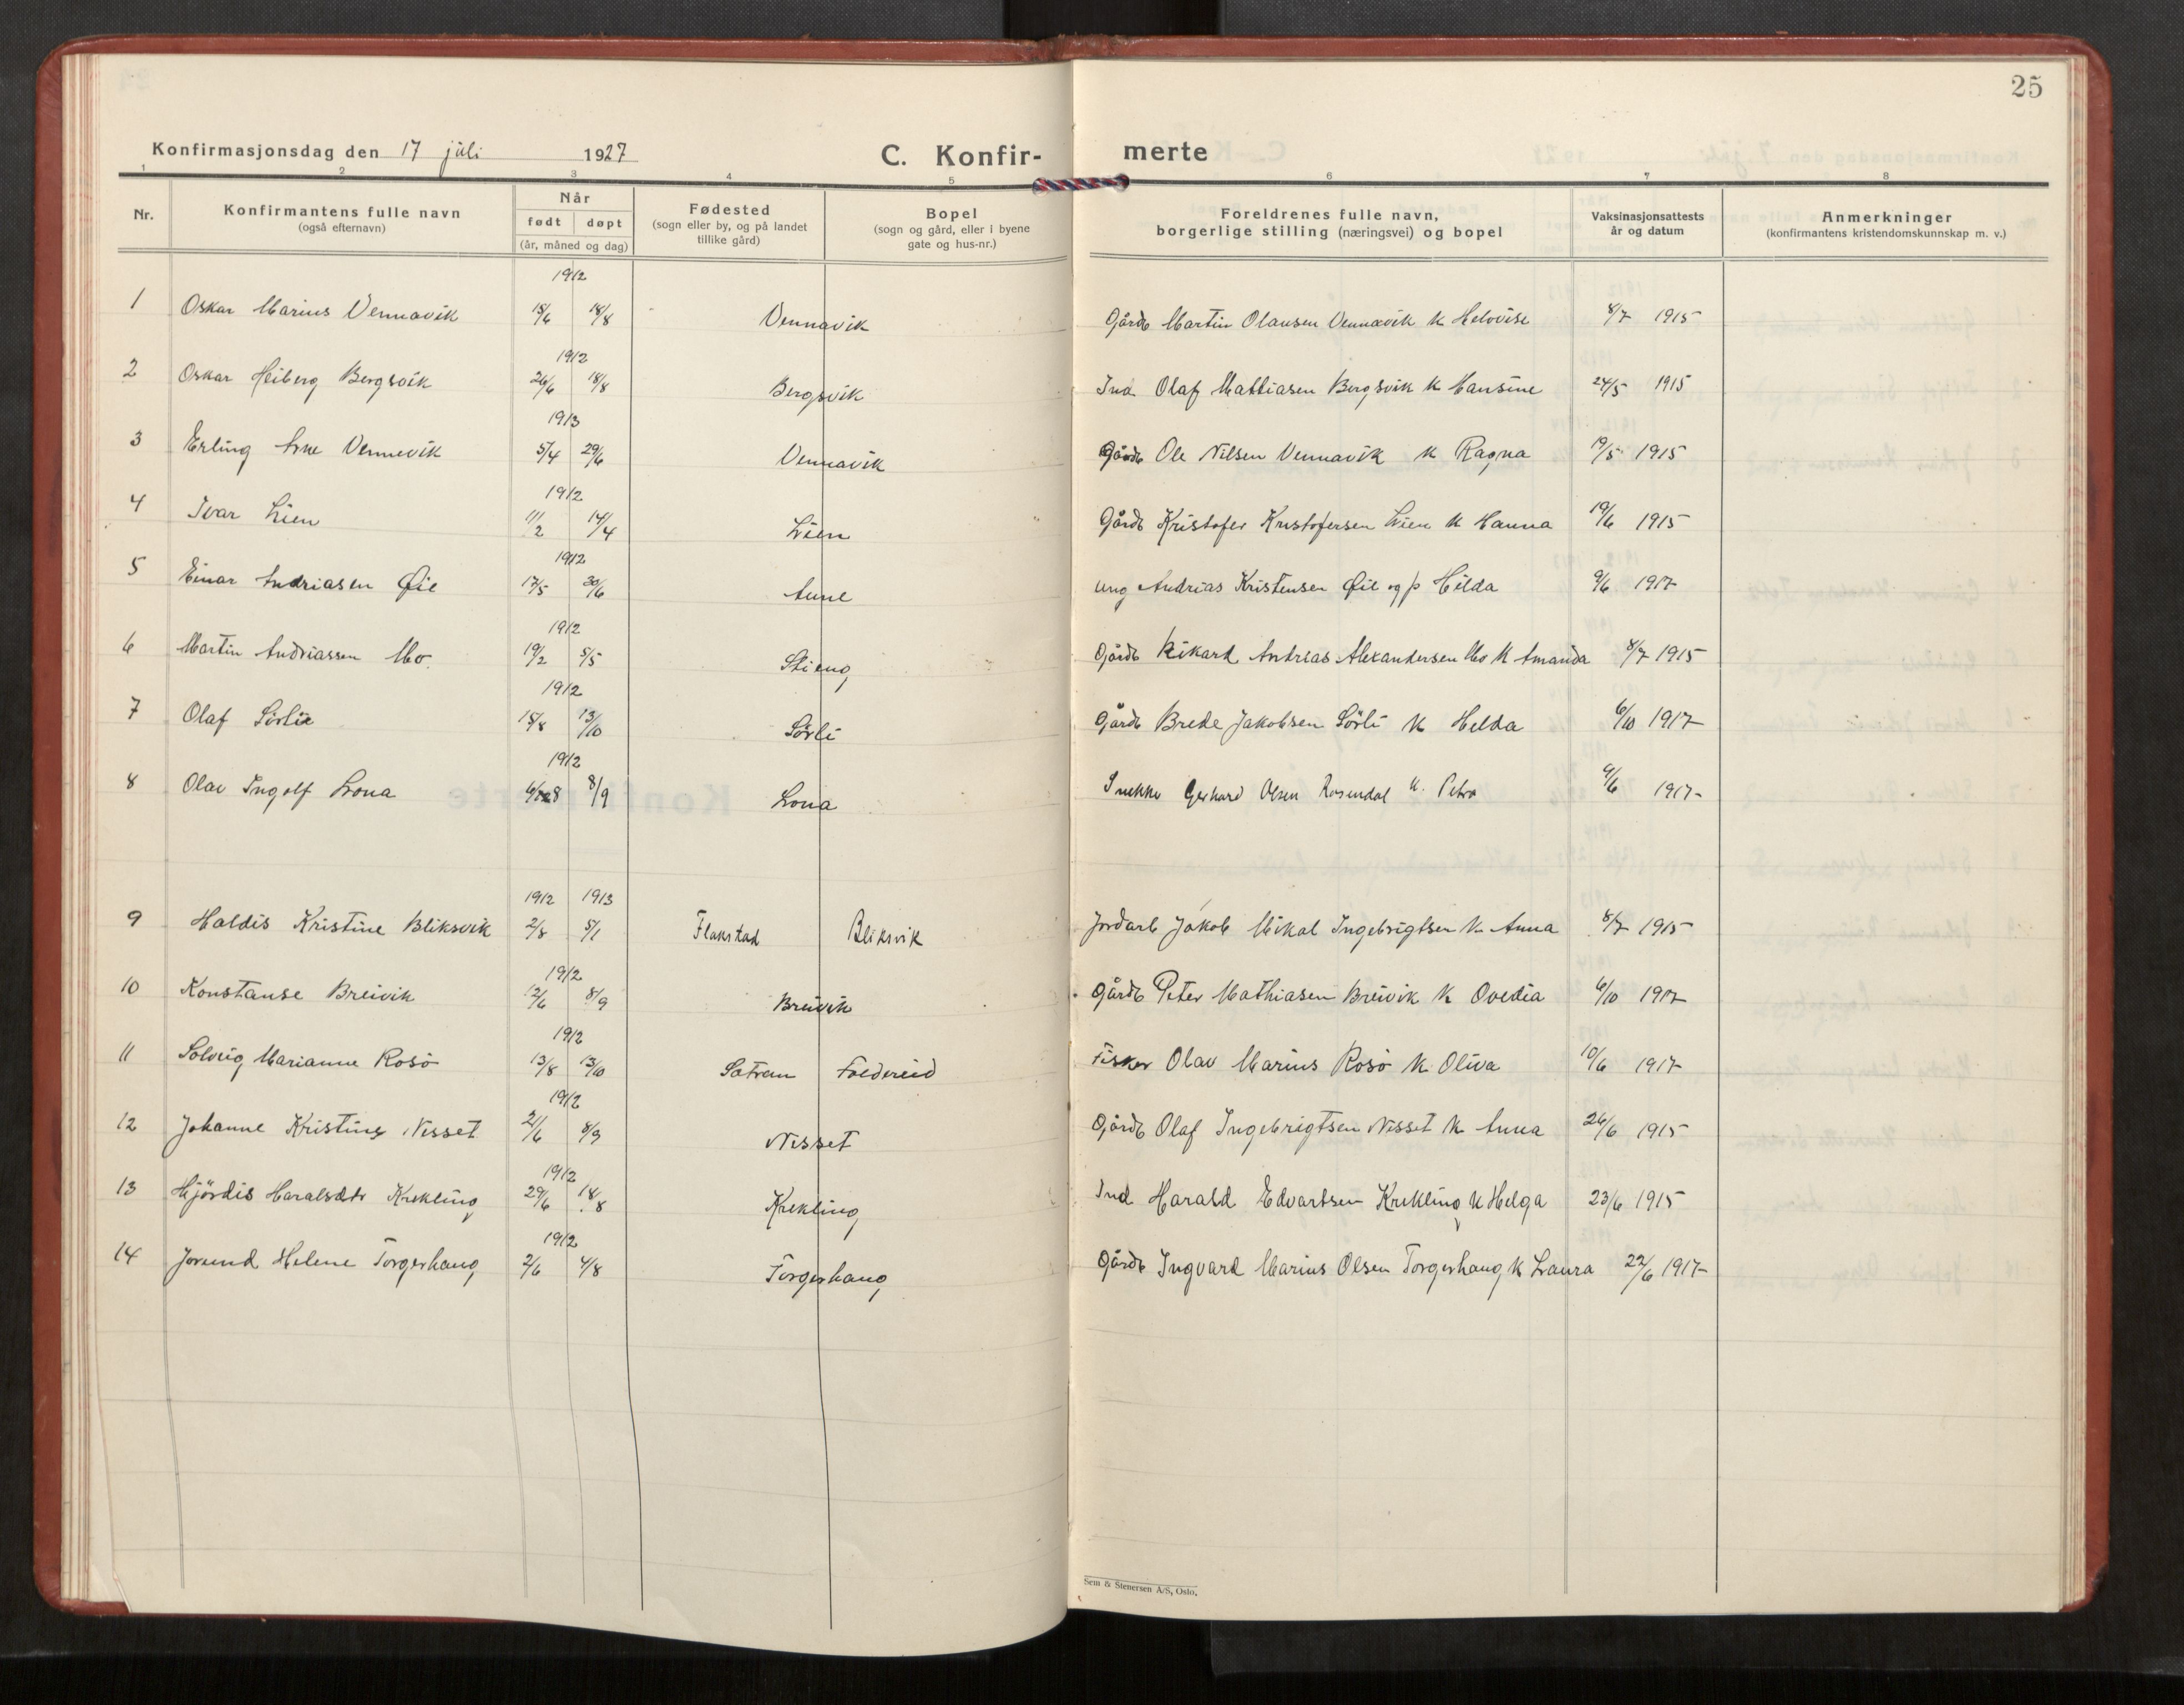 25
Konfirmasjonsdag den 17 juli 1927 C. Konfir- merte
1 2 3 4 5 6 7 8
Nr. Konfirmantens fulle navn (også efternavn) Når født døpt (år, måned og dag) Fødested (sogn eller by, og på landet tillike gård) Bopel (sogn og gård, eller i byene gate og hus-nr.) Foreldrenes fulle navn, borgerlige stilling (næringsvei) og bopel Vaksinasjonsattests år og datum Anmerkninger (konfirmantens kristendomskunnskap m. v.)
1912
1 Oskar Marius Vennavik 15/6 18/8 Vennavik Gårdb Martin Olausen Vennavik k Helovise 8/7 1915
1912
2 Oskar Heiberg Bergsvik 26/6 18/8 Bergsvik Ind Olaf Mattiasen Bergsvik k Hansine 24/5 1915
1913
3 Erling Arne Vennevik 5/4 29/6 Vennavik Gårdb Ole Nilsen Vennavik k Ragna 19/5 1915
1912
4 Ivar Lien 11/2 14/4 Lien Gårdb Kristofer Kristofersen Lien k Hanna 19/6 1915
1912
5 Einar Andriasen Øie 17/5 30/6 Aune ung Andrias Kristensen Øie og p Hilda 9/6 1917
1912
6 Martin Andriassen Mo. 19/2 5/5 Stieng Gårdb Rikard Andreas Alexandersen Mo k Amanda 8/7 1915
1912
7 Olaf Sörlie 15/8 13/10 Sörli Gårdb Brede Jakobsen Sörli k Helda 6/10 1917
1912
8 Olav Ingolf Lona 8/9 Lona Snekker Gerhard Olsen Rosendal k. Petra 9/6 1917
1912 1913
9 Haldis Kristine Bliksvik 2/8 5/1 Flakstad Bliksvik Jordarb Jakob Mikal Ingebrigtsen k Anna 8/7 1915
1912
10 Konstanse Breivik 12/6 8/9 Breivik Gårdb Peter Mathiasen Breivik k Ovedia 6/10 1917
1912
11 Solveig Marianne Rosö 13/8 13/10 Satran Foldereid Fisker Olav Marius Rosö k Oliva 10/6 1917
1912
12 Johanne Kristine Nisset 21/6 8/9 Nisset Gårdb Olaf Ingebrigtsen Nisset k Anna 26/6 1915
1912
13 Hjördis Haralsdtr Krekling 29/6 18/8 Krekling Ind Harald Edvartsen Krekling k Helga 23/6 1915
1912
14 Jorund Helene Torgerhaug 2/6 4/8 Torgerhaug Gårdb Ingvard Marius Olsen Torgerhaug k Laura 22/6 1917
Sem & Stenersen A/S, Oslo.